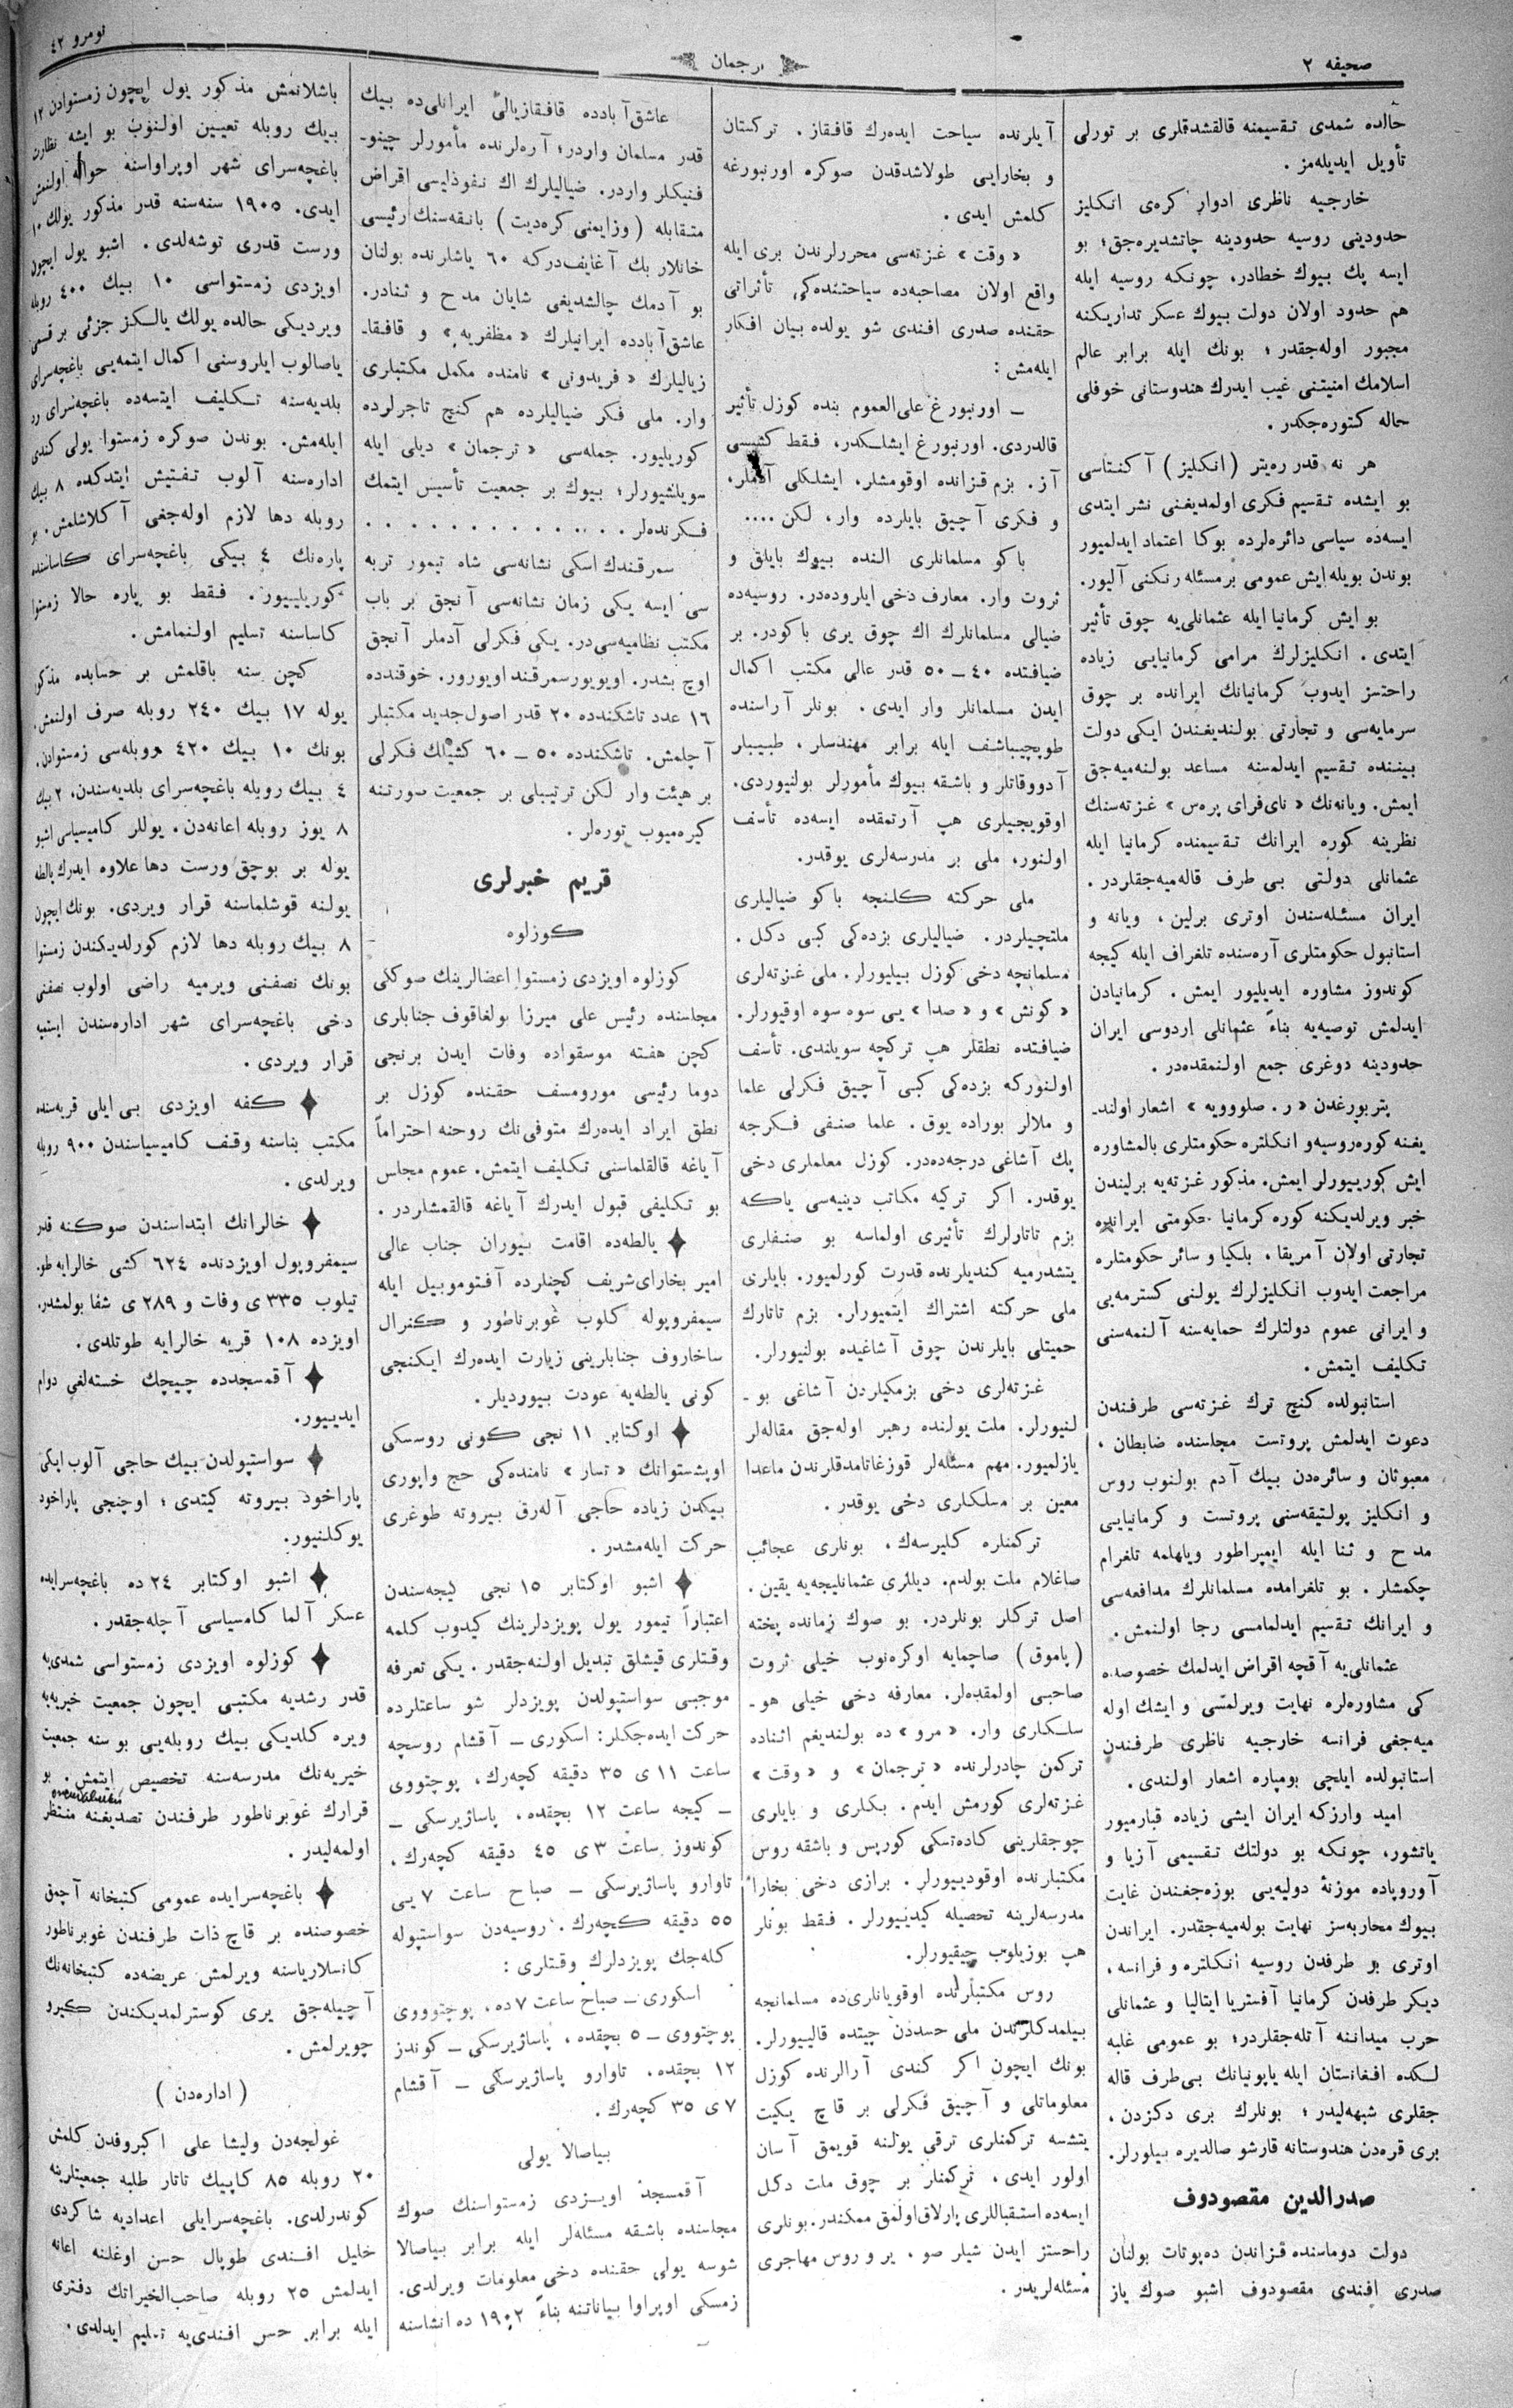 صحیفه ٢
ترجمان
نومرو ٤٢
حالده شمدی تقسیمنه قالقشدقلری بر تورلی
تأویل ایدیله‌مز.
خارجیه ناظری ادوار کره‌ی انكلیز
حدودینی روسیه حدودینه چاتشدیره‌جق؛ بو
ایسه پك بیوك خطادر، چونكه روسیه ایله
هم حدود اولان دولت بیوك عسكر تداریكنه
مجبور اوله‌جقدر؛ بونك ایله برابر عالم
اسلامك امنیتنی غیب ایدرك هندوستانی خوفلی
حاله كتوره‌جكدر.
هر نه قدر ره‌یتر (انكلیز) آكنتاسی
بو ایشده تقسیم فكری اولمدیغنی نشر ایتدی
ایسه‌ده سیاسی دائره‌لرده بوكا اعتماد ایدلمیور
بوندن بویله ایش عمومی بر مسئله رنكنی آلیور.
بو ایش كرمانیا ایله عثمانلی‌یه چوق تأثیر
ایتدی. انكلیزلرك مرامی كرمانیایی زیاده
راحتسز ایدوب كرمانیانك ایرانده بر چوق
سرمایه‌سی و تجارتی بولندیغندن ایكی دولت
بیننده تقسیم ایدلمسنه مساعد بولنه‌میه‌جق
ایمش. ویانه‌نك «نای‌فرای پره‌س» غزته‌سنك
نظرینه كوره ایرانك تقسیمنده كرمانیا ایله
عثمانلی دولتی بی طرف قاله‌میه‌جقلردر.
ایران مسئله‌سندن اوتری برلین، ویانه و
استانبول حكومتلری آره‌سنده تلغراف ایله كیجه
كوندوز مشاوره ایدیلیور ایمش. كرمانیادن
ایدلمش توصیه‌یه بناءً عثمانلی اردوسی ایران
حدودینه دوغری جمع اولنمقده‌در.
پتربورغدن «ر. صلوویه» اشعار اولند-
یغنه كوره روسیه و انكلتره حكومتلری بالمشاوره
ایش كورییورلر ایمش. مذكور غزته‌یه برلیندن
خبر ویرلدیكنه كوره كرمانیا حكومتی ایرانده
تجارتی اولان آمریقا، بلكیا و سائر حكومتلره
مراجعت ایدوب انكلیزلرك یولنی كسترمه‌یی
و ایرانی عموم دولتلرك حمایه‌سنه آلنمه‌سنی
تكلیف ایتمش.
استانبولده كنج ترك غزته‌سی طرفندن
دعوت ایدلمش پروتست مجلسنده ضابطان،
معبوثان و سائره‌دن بیك آدم بولنوب روس
و انكلیز پولتیقه‌سنی پروتست و كرمانیایی
مدح و ثنا ایله ایمپراطور ویلهلمه تلغرام
چكمشلر. بو تلغرامده مسلمانلرك مدافعه‌سی
و ایرانك تقسیم ایدلمامسی رجا اولنمش.
عثمانلی‌یه آقچه اقراض ایدلمك خصوصنده
كی مشاوره‌لره نهایت ویرلمسی و ایشك اوله
میه‌جغی فرانسه خارجیه ناظری طرفندن
استانبولده ایلچی بومپاره اشعار اولندی.
امید وارزكه ایران ایشی زیاده قبارمیور
یاتشور، چونكه بو دولتك تقسیمی آزیا و
آوروپاده موزنهٔ دولیه‌یی بوزه‌جغندن غایت
بیوك محاربه‌سز نهایت بوله‌میه‌جقدر. ایراندن
اوتری بو طرفدن روسیه انكلتره و فرانسه،
دیكر طرفدن كرمانیا آفستریا ایتالیا و عثمانلی
حرب میداننه آتله‌جقلردر؛ بو عمومی غلبه
لكده افغانستان ایله یاپونیانك بی‌طرف قاله
جقلری شبهه‌لیدر؛ بونلرك بری دكزدن،
بری قره‌دن هندوستانه قارشو صالدیره بیلورلر.
صدرالدین مقصودوف
دولت دوماسنده قزاندن ده‌پوتات بولنان
صدری افندی مقصودوف اشبو صوك یاز
آیلرنده سیاحت ایده‌رك قافقاز، تركستان
و بخارایی طولاشدقدن صوكره اورنبورغه
كلمش ایدی.
«وقت» غزته‌سی محررلرندن بری ایله
واقع اولان مصاحبه‌ده سیاحتنده‌كی تأثراتی
حقنده صدری افندی شو یولده بیان افكار
ایله‌مش:
ـ اورنبورغ علی‌العموم بنده كوزل تأثیر
قالدردی. اورنبورغ ایشلكدر، فقط كشیسی
آز. بزم قزانده اوقومشلر، ایشلكلی آدملر،
و فكری آچیق بایلرده وار، لكن....
باكو مسلمانلری النده بیوك بایلق و
ثروت وار. معارف دخی ایلروده‌در. روسیه‌ده
ضیالی مسلمانلرك اك چوق یری باكودر. بر
ضیافتده ٤٠ ـ ٥٠ قدر عالی مكتب اكمال
ایدن مسلمانلر وار ایدی. بونلر آراسنده
طوپچیباشف ایله برابر مهندسلر، طبیبلر
آدووقاتلر و باشقه بیوك مأمورلر بولنیوردی.
اوقویجیلری هپ آرتمقده ایسه‌ده تأسف
اولنور، ملی بر مدرسه‌لری یوقدر.
ملی حركته كلنجه باكو ضیالیلری
ملتچیلردر. ضیالیلری بزده‌كی كبی دكل.
مسلمانچه دخی كوزل بیلیورلر. ملی غزته‌لری
«كونش» و «صدا» یی سوه سوه اوقیورلر.
ضیافتده نطقلر هپ تركچه سویلندی. تأسف
اولنوركه بزده‌كی كبی آچیق فكرلی علما
و ملالر بوراده یوق. علما صنفی فكرجه
پك آشاغی درجه‌ده‌در. كوزل معلملری دخی
یوقدر. اكر تركیه مكاتب دینیه‌سی یاكه
بزم تاتارلرك تأثیری اولماسه بو صنفلری
یتشدرمیه كندیلرنده قدرت كورلمیور. بایلری
ملی حركته اشتراك ایتمیورلر. بزم تاتارك
حمیتلی بایلرندن چوق آشاغیده بولنیورلر.
غزته‌لری دخی بزمكیلردن آشاغی بو ـ
لنیورلر. ملت یولنده رهبر اوله‌جق مقاله‌لر
یازلمیور. مهم مسئله‌لر قوزغاتامدقلرندن ماعدا
معین بر مسلكلری دخی یوقدر.
تركمنلره كلیرسه‌ك، بونلری عجائب
صاغلام ملت بولدم. دیللری عثمانلیجه‌یه یقین.
اصل تركلر بونلردر. بو صوك زمانده پخته
(پاموق) صاچمایه اوكره‌نوب خیلی ثروت
صاحبی اولمقده‌لر. معارفه دخی خیلی هو ـ
سلكلری وار. «مرو» ده بولندیغم اثناده
تركمن چادرلرنده «ترجمان» و «وقت»
غزته‌لری كورمش ایدم. بكلری و بایلری
چوجقلرینی كاده‌تسكی كورپس و باشقه روس
مكتبلرنده اوقودییورلر. برازی دخی بخارا
مدرسه‌لرینه تحصیله كیدییورلر. فقط بونلر
هپ بوزیلوب چیقیورلر.
روس مكتبلرنده اوقویانلری‌ده مسلمانجه
بیلمدكلرندن ملی حسدن چیتده قالییورلر.
بونك ایچون اكر كندی آرالرنده كوزل
معلوماتلی و آچیق فكرلی بر قاچ یكیت
یتشسه تركمنلری ترقی یولنه قویمق آسان
اولور ایدی، تركمنلر بر چوق ملت دكل
ایسه‌ده استقباللری پارلاق اولمق ممكندر. بونلری
راحتسز ایدن شیلر صو، یر و روس مهاجری
مسئله‌لریدر.
عاشق‌آبادده قافقازیالی ایرانلی‌ده بیك
قدر مسلمان واردر؛ آره‌لرنده مأمورلر چینو-
فنیكلر واردر. ضیالیلرك اك نفوذلیسی اقراض
متقابله (وزایمنی كره‌دیت) بانقه‌سنك رئیسی
خانلار بك آغایف‌دركه ٦٠ یاشلرنده بولنان
بو آدمك چالشدیغی شایان مدح و ثنادر.
عاشق‌آبادده ایرانیلرك «مظفریه» و قافقا-
زیالیلرك «فریدونی» نامنده مكمل مكتبلری
وار. ملی فكر ضیالیلرده هم كنج تاجرلرده
كوریلیور. جمله‌سی «ترجمان» دیلی ایله
سویلشیورلر؛ بیوك بر جمعیت تأسیس ایتمك
فكرنده‌لر . . . . . . . . . . . .
سمرقندك اسكی نشانه‌سی شاه تیمور تربه
سی ایسه یكی زمان نشانه‌سی آنجق بر باب
مكتب نظامیه‌سی‌در. یكی فكرلی آدملر آنجق
اوچ بشدر. اویویور سمرقند اویورور. خوقندده
١٦ عدد تاشكندده ٢٠ قدر اصول جدید مكتبلر
آچلمش. تاشكندده ٥٠ ـ ٦٠ كشیلك فكرلی
بر هیئت وار لكن ترتیبلی بر جمعیت صورتنه
كیره‌میوب توره‌لر.
قریم خبرلری
كوزلوه
كوزلوه اویزدی زمستوا اعضالرینك صوككی
مجلسنده رئیس علی میرزا بولغاقوف جنابلری
كچن هفته موسقواده وفات ایدن برنجی
دوما رئیسی مورومسف حقنده كوزل بر
نطق ایراد ایده‌رك متوفی‌نك روحنه احتراماً
آیاغه قالقلماسنی تكلیف ایتمش. عموم مجلس
بو تكلیفی قبول ایدرك آیاغه قالقمشلردر.
✦ یالطه‌ده اقامت بیوران جناب عالی
امیر بخارای شریف كچنلرده آفتوموبیل ایله
سیمفروپوله كلوب غوبرناطور و كنرال
ساخاروف جنابلرینی زیارت ایده‌رك ایكنجی
كونی یالطه‌یه عودت بیوردیلر.
✦ اوكتابر ١١ نجی كونی روسكی
اوبشستوانك «تسار» نامنده‌كی حج واپوری
بیكدن زیاده حاجی آله‌رق بیروته طوغری
حركت ایله‌مشدر.
✦ اشبو اوكتابر ١٥ نجی كیجه‌سندن
اعتباراً تیمور یول پویزدلرینك كیدوب كلمه
وقتلری قیشلق تبدیل اولنه‌جقدر. یكی تعرفه
موجبی سواستپولدن پویزدلر شو ساعتلرده
حركت ایده‌جكلر: اسكوری ـ آقشام روسچه
ساعت ١١ ی ٣٥ دقیقه كچه‌رك، پوچتووی
ـ كیجه ساعت ١٢ بچقده، پاساژیرسكی ـ
كوندوز ساعت ٣ ی ٤٥ دقیقه كچه‌رك،
تاوارو پاساژیرسكی ـ صباح ساعت ٧ یی
٥٥ دقیقه كچه‌رك. روسیه‌دن سواستپوله
كله‌جك پویزدلرك وقتلری:
اسكوری ـ صباح ساعت ٧ ده، پوچتوووی
پوچتووی ـ ٥ بچقده، پاساژیرسكی ـ كوندز
١٢ بچقده، تاوارو پاساژیرسكی ـ آقشام
٧ ی ٣٥ كچه‌رك.
بیاصالا یولی
آقمسجد اویزدی زمستواسنك صوك
مجلسنده باشقه مسئله‌لر ایله برابر بیاصالا
شوسه یولی حقنده دخی معلومات ویرلدی.
زمسكی اوپراوا بیاناتنه بناءً ١٩٠٢ ده انشاسنه
باشلانمش مذكور یول ایچون زمستوادن ١٢
بیك روبله تعیین اولنوب بو ایشه نظارت
باغچه‌سرای شهر اوپراواسنه حواله اولنمش
ایدی. ١٩٠٥ سنه‌سنه قدر مذكور یولك ١٠
ورست قدری توشه‌لدی. اشبو یول ایچون
اویزدی زمستواسی ١٠ بیك ٤٠٠ روبله
ویردیكی حالده یولك یالكز جزئی بر قسمی
یاصالوب ایلروسنی اكمال ایتمه‌یی باغچه‌سرای
بلدیه‌سنه تكلیف ایتسه‌ده باغچه‌سرای رد
ایله‌مش. بوندن صوكره زمستوا یولی كندی
اداره‌سنه آلوب تفتیش ایتدكده ٨ بیك
روبله دها لازم اوله‌جغی آكلاشلمش. بو
پاره‌نك ٤ بیكی باغچه‌سرای كاساسنده
كوریلییور. فقط بو پاره حالا زمستوا
كاساسنه تسلیم اولنمامش.
كچن سنه باقلمش بر حسابده مذكور
یوله ١٧ بیك ٢٤٠ روبله صرف اولنمش.
بونك ١٠ بیك ٤٢٠ روبله‌سی زمستوادن،
٤ بیك روبله باغچه‌سرای بلدیه‌سندن، ٢ بیك
٨ یوز روبله اعانه‌دن. یوللر كامیسیاسی اشبو
یوله بر بوچق ورست دها علاوه ایدرك یالطه
یولنه قوشلماسنه قرار ویردی. بونك ایچون
٨ بیك روبله دها لازم كورلدیكندن زمستوا
بونك نصفنی ویرمیه راضی اولوب نصفنی
دخی باغچه‌سرای شهر اداره‌سندن ایستمیه
قرار ویردی.
✦ كفه اویزدی بی ایلی قریه‌سنده
مكتب بناسنه وقف كامیسیاسندن ٩٠٠ روبله
ویرلدی.
✦ خالرانك ابتداسندن صوكنه قدر
سیمفروپول اویزدنده ٦٢٤ كشی خالرایه طو-
تیلوب ٣٣٥ ی وفات و ٢٨٩ ی شفا بولمشدر.
اویزده ١٠٨ قریه خالرایه طوتلدی.
✦ آقمسجدده چیچك خسته‌لغی دوام
ایدییور.
✦ سواستپولدن بیك حاجی آلوب ایكی
پاراخود بیروته كیتدی؛ اوچنجی پاراخود
یوكلنیور.
✦ اشبو اوكتابر ٢٤ ده باغچه‌سرایده
عسكر آلما كامسیاسی آچله‌جقدر.
✦ كوزلوه اویزدی زمستواسی شمدی‌یه
قدر رشدیه مكتبی ایچون جمعیت خیریه‌یه
ویره كلدیكی بیك روبله‌یی بو سنه جمعیت
خیریه‌نك مدرسه‌سنه تخصیص ایتمش. بو
قرارك غوبرناطور طرفندن تصدیغنه منتظر
اولمه‌لیدر.
✦ باغچه‌سرایده عمومی كتبخانه آچمق
خصوصنده بر قاچ ذات طرفندن غوبرناطور
كانسلاریاسنه ویرلمش عریضه‌ده كتبخانه‌نك
آچیله‌جق یری كوسترلمدیكندن كیرو
چویرلمش.
(اداره‌دن)
غولجه‌دن ولیشا علی اكبروفدن كلمش
٢٠ روبله ٨٥ كاپیك تاتار طلبه جمعیتلرینه
كوندرلدی. باغچه‌سرایلی اعدادیه شاكردی
خلیل افندی طوپال حسن اوغلنه اعانه
ایدلمش ٢٥ روبله صاحب‌الخیراتك دفتری
ایله برابر حسن افندی‌یه تسلیم ایدلدی.